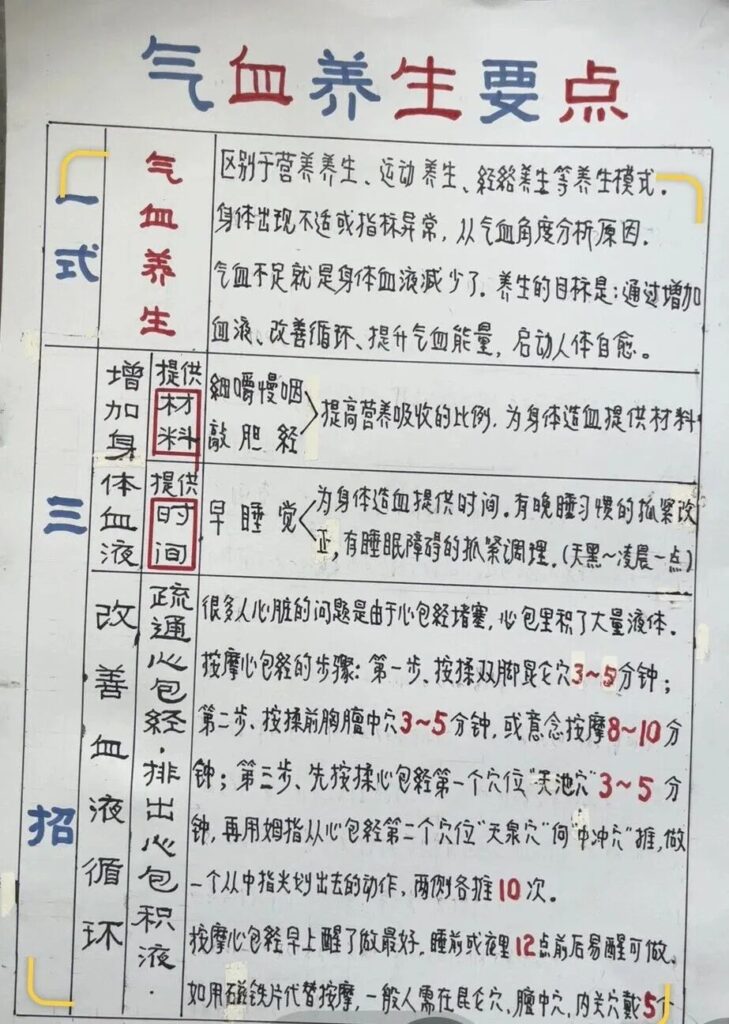 气血养生要点
一式
气血养生
区别于营养养生、运动养生、经络养生等养生模式.
身体出现不适或指标异常,从气血角度分析原因.
气血不足就是身体血液减少了.养生的目标是:通过增加
血液、改善循环、提升气血能量,启动人体自愈。
三招
增加身体血液
提供材料
細嚼慢咽
敲胆经
提高营养吸收的比例.为身体造血提供材料
提供时间
早睡觉
为身体造血提供时间.有晚睡习惯的抓紧改
正,有睡眠障碍的抓紧调理.(天黑~凌晨一点)
改善血液循环
疏通心包经.排出心包积液.
很多人心脏的问题是由于心包经堵塞,心包里积了大量液体.
按摩心包经的步骤:第一步、按揉双脚昆仑穴3~5分钟;
第二步、按揉前胸膻中穴3~5分钟,或意念按摩8~10分
钟;第三步、先按揉心包经第一个穴位"天池穴"3~5分
钟,再用姆指从心包经第二个穴位"天泉穴"向"中冲穴"推,做
一个从中指尖划出去的动作,两侧各推10次。
按摩心包经早上醒了做最好,睡前或夜里12点前后易醒可做.
如用磁铁片代替按摩,一般人需在昆仑穴,膻中穴,内关穴戴5个